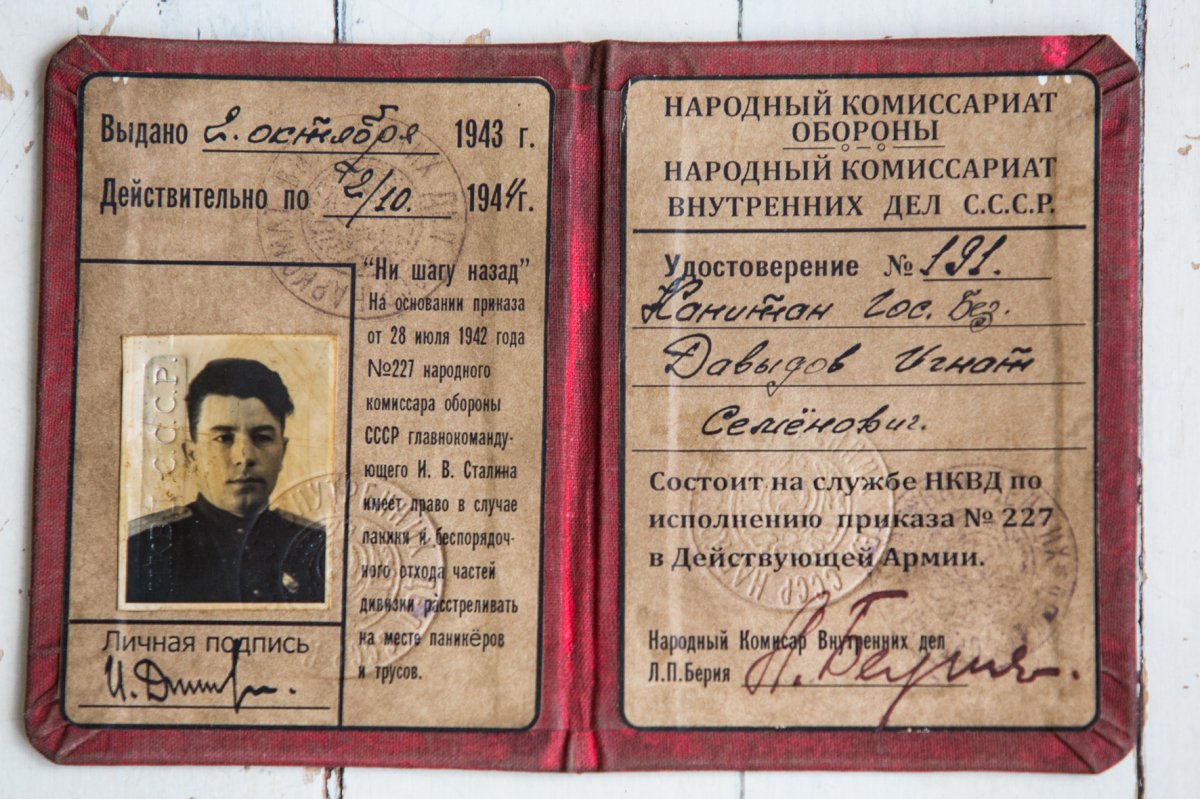 Выдано 2. октября 1943 г.
Действительно по 2/10. 1944г.
"Ни шагу назад"
На основании приказа
от 28 июля 1942 года
№227 народного
комиссара обороны
СССР главнокоманду-
ющего И. В. Сталина
имеет право в случае
паники и беспорядоч-
ного отхода частей
дивизии расстреливать
на месте паникёров
и трусов.
С.С.С.Р.
Личная подпись
НАРОДНЫЙ КОМИССАРИАТ
ОБОРОНЫ
НАРОДНЫЙ КОМИССАРИАТ
ВНУТРЕННИХ ДЕЛ С.С.С.Р.
Удостоверение № 191.
Капитан Гос. Без.
Давыдов Игнат
Семёнович.
Состоит на службе НКВД по
исполнению приказа № 227
в Действующей Армии.
Народный Комисар Внутренних дел
Л.П.Берия Л. Берия.